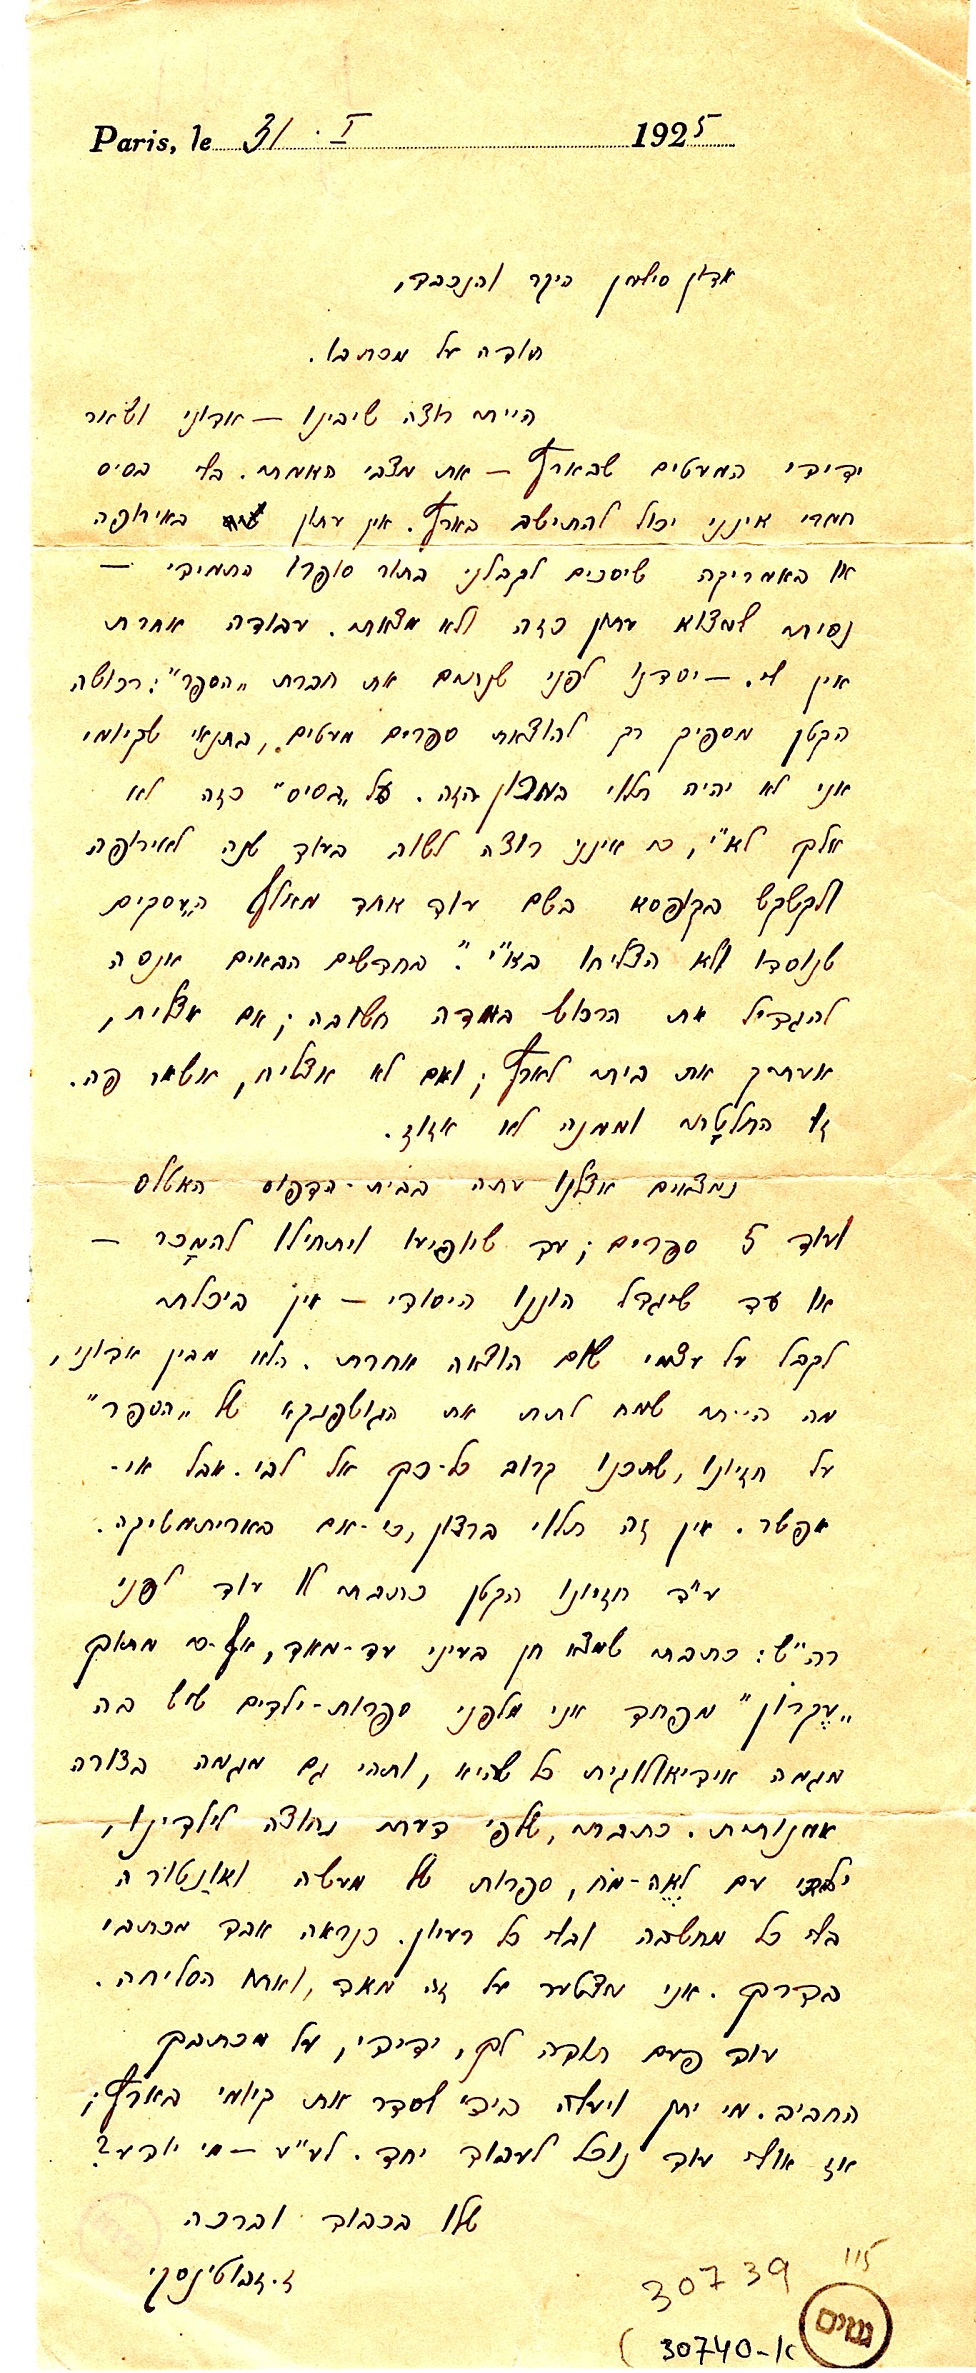 Paris, le 31. I 1925
אדון סילמן היקר והנכבד,
תודה על מכתבו.
הייתי רוצה שיבינו – אדוני ושאר
ידידי המעטים שבארץ – את מצבי האמתי. בלי בסיס
חמרי אינני יכול להתישב בארץ. אין עתון באירופה
או באמריקה שיסכים לקבלני בתור סופרו התמידי –
נסיתי למצוא עתון כזה ולא מצאתי. עבודה אחרת
אין לי. – יסדנו לפני שנתים את חברת „הספר”: רכושה
הקטן מספיק רק להוצאת ספרים מעטים, בתנאי שקיומי
אני לא יהיה תלוי במכון הזה. על „בסיס” כזה לא
אלך לא”י, כי אינני רוצה לשוב בעוד שנה לאירופה
ולקשקש בקופסא בשם עוד אחד מאלף ה„עסקים
שנוסדו ולא הצליחו בא”י”. בחדשים הבאים אנסה
להגדיל את הרכוש במדה חשובה; אם אצליח,
אעתיק את ביתי לארץ; ואם לא אצליח, אשאר פה.
זו החלטתי וממנה לא אזוז.
נמצאים אצלנו עתה בבית-הדפוס האטלס
ועוד 5 ספרים; עד שיופיעו ויתחילו להמכר –
או עד שיגדל הוננו היסודי – אין ביכלתי
לקבל על עצמי שום הוצאה אחרת. הלא מבין אדוני,
מה הייתי שמח לתת את הגושפנקא של „הספר”
על חזיונו, שתכנו קרוב כל-כך אל לבי. אבל אי-
אפשר. אין זה תלוי ברצון, כי-אם באריתמטיקה.
ע”ד חזיונו הקטן כתבתי לו עוד לפני
רה”ש: כתבתי שמצא חן בעיני עד-מאד, אף-כי מתוך
„עקרון” מפחד אני מלפני ספרות-ילדים שיש בה
מגמה אידיאולוגית כל שהיא, ותהי גם מגמה בצורה
אמנותית. כתבתי, שלפי דעתי נחוצה לילדינו,
ילדי עם לאה-מח, ספרות של מעשה ואונטורה
בלי כל מחשבה ובלי כל רעיון. כנראה אבד מכתבי
בדרך. אני מצטער על זה מאד, ואתו הסליחה.
עוד פעם תודה לך, ידידי, על מכתבך
החביב. מי יתן ויעלה בידי לסדר את קיומי בארץ;
אז אולי עוד נוכל לעבוד יחד. לע”ע – מי יודע?
שלו בכבוד וברכה
ז. ז'בוטינסקי
115
30739
30740-א